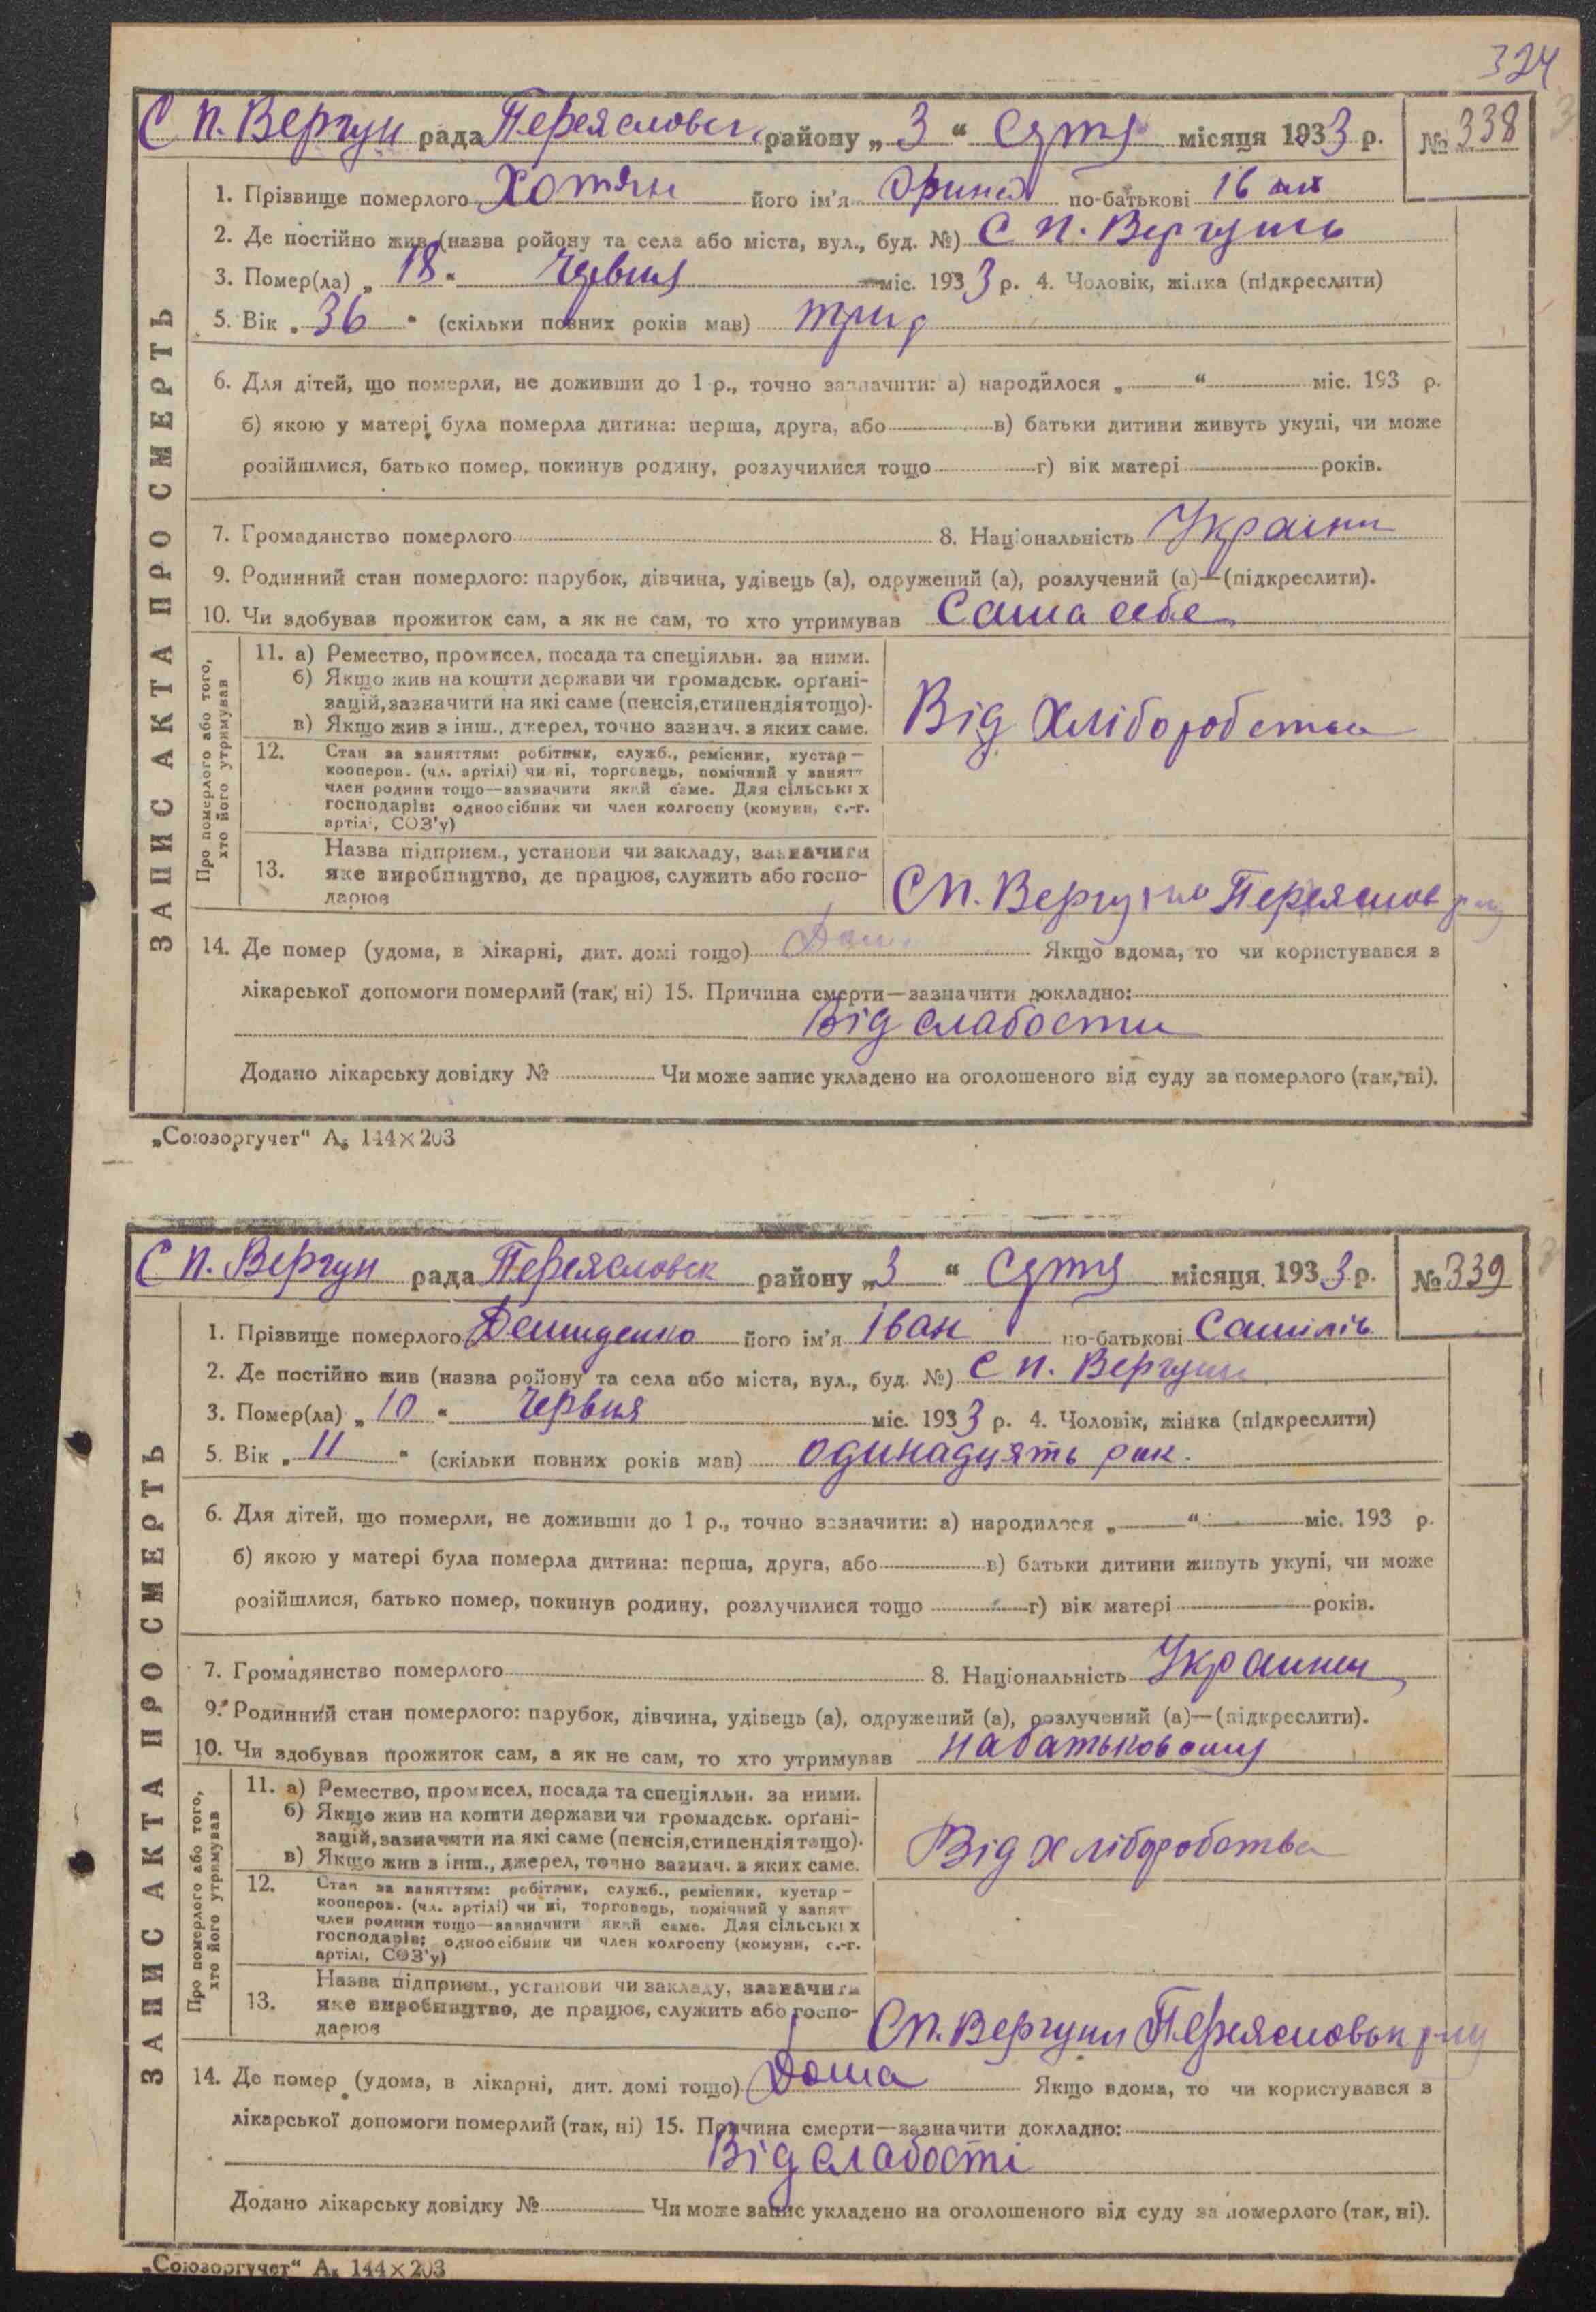 324
С П. Вергун рада Переясловск району „ 3 “ Сутч місяця 1933 р. № 338
ЗАПИС АКТА ПРО СМЕРТЬ
1. Прізвище померлого Хотян його ім'я Орина по-батькові
2. Де постійно жив (назва ройону та села або міста, вул., буд. №) С П. Вергунь
3. Помер(ла) „ 18 “ Червня міс. 1933 р. 4. Чоловік, жінка (підкреслити)
5. Вік „ 36 “ (скільки повних років мав)
6. Для дітей, що померли, не доживши до 1 р., точно зазначити: а) народилося „ “ міс. 193 р.
б) якою у матері була померла дитина: перша, друга, або в) батьки дитини живуть укупі, чи може
розійшлися, батько помер, покинув родину, розлучилися тощо г) вік матері років.
7. Громадянство померлого 8. Національність Україн
9. Родинний стан померлого: парубок, дівчина, удівець (а), одружений (а), розлучений (а)—(підкреслити).
10. Чи здобував прожиток сам, а як не сам, то хто утримував Сама себе
Про померлого або того, хто його утримував
11. а) Ремество, промисел, посада та спеціяльн. за ними.
б) Якщо жив на кошти держави чи громадськ. орґані-
зацій, зазначити на які саме (пенсія, стипендія тощо).
в) Якщо жив з інш., джерел, точно зазнач. з яких саме.
Від Хліборобства
12. Стан за заняттям: робітник, служб., ремісник, кустар—
кооперов. (чл. артілі) чи ні, торговець, помічний у занятт
член родини тощо—зазначити який саме. Для сільських
господарів: одноосібник чи член колгоспу (комуни, с.-г.
артілі, СОЗ'у)
13. Назва підприєм., установи чи закладу, зазначити
яке виробництво, де працює, служить або госпо-
дарює
СП. Вергун Переяслов
14. Де помер (удома, в лікарні, дит. домі тощо) Дома Якщо вдома, то чи користувався з
лікарської допомоги померлий (так, ні) 15. Причина смерти—зазначити докладно:
Від слабости
Додано лікарську довідку № Чи може запис укладено на оголошеного від суду за померлого (так, ні).
„Союзоргучет“ А₆ 144×203
С П. Вергун рада Переясловск району „ 3 “ Сутч місяця 1933 р. № 339
ЗАПИС АКТА ПРО СМЕРТЬ
1. Прізвище померлого Демиденко його ім'я Іван по-батькові
2. Де постійно жив (назва ройону та села або міста, вул., буд. №) С П. Вергуни
3. Помер(ла) „ 10 “ Червня міс. 1933 р. 4. Чоловік, жінка (підкреслити)
5. Вік „ 11 “ (скільки повних років мав) одинадцять рок.
6. Для дітей, що померли, не доживши до 1 р., точно зазначити: а) народилося „ “ міс. 193 р.
б) якою у матері була померла дитина: перша, друга, або в) батьки дитини живуть укупі, чи може
розійшлися, батько помер, покинув родину, розлучилися тощо г) вік матері років.
7. Громадянство померлого 8. Національність Украинец
9. Родинний стан померлого: парубок, дівчина, удівець (а), одружений (а), розлучений (а)—(підкреслити).
10. Чи здобував прожиток сам, а як не сам, то хто утримував на батьковому
Про померлого або того, хто його утримував
11. а) Ремество, промисел, посада та спеціяльн. за ними.
б) Якщо жив на кошти держави чи громадськ. орґані-
зацій, зазначити на які саме (пенсія, стипендія тощо).
в) Якщо жив з інш., джерел, точно зазнач. з яких саме.
Від хліборобства
12. Стан за заняттям: робітник, служб., ремісник, кустар—
кооперов. (чл. артілі) чи ні, торговець, помічний у занят
член родини тощо—зазначити який саме. Для сільських
господарів: одноосібник чи член колгоспу (комуни, с.-г.
артілі, СОЗ'у)
13. Назва підприєм., установи чи закладу, зазначити
яке виробництво, де працює, служить або госпо-
дарює
СП. Вергуни Переясловськ
14. Де помер (удома, в лікарні, дит. домі тощо) Дома Якщо вдома, то чи користувався з
лікарської допомоги померлий (так, ні) 15. Причина смерти—зазначити докладно:
Від слабості
Додано лікарську довідку № Чи може запис укладено на оголошеного від суду за померлого (так, ні).
„Союзоргучет“ А₆ 144×203